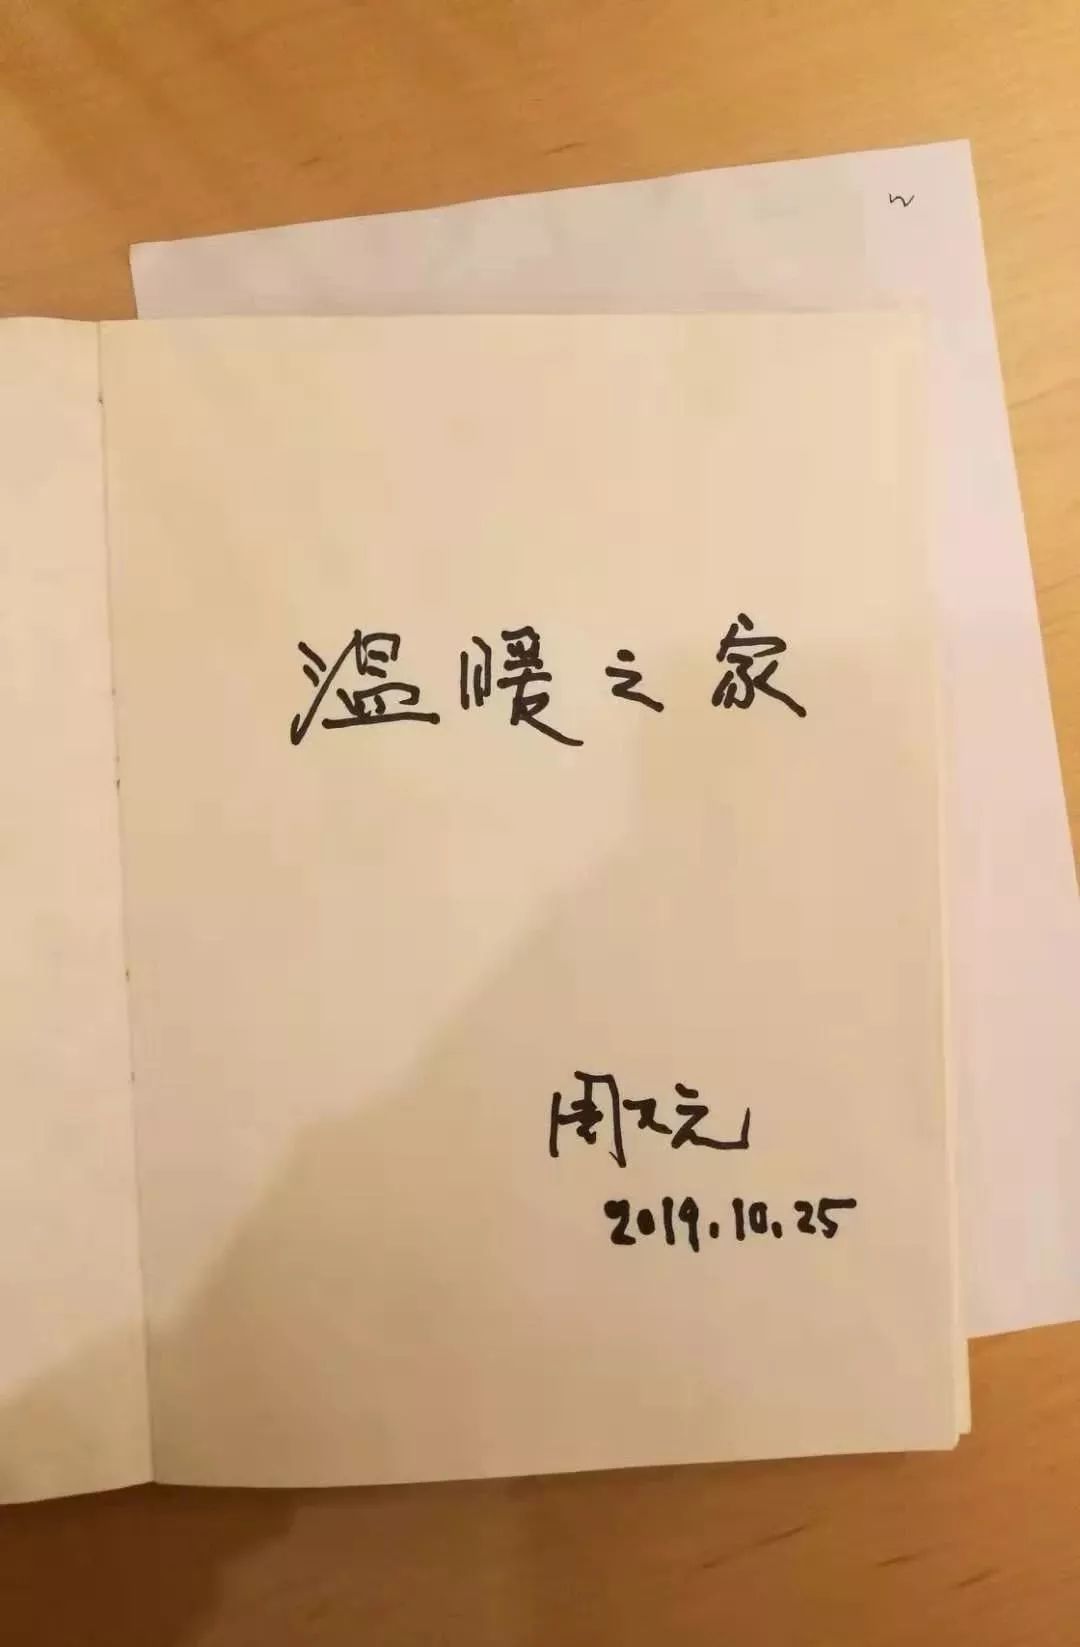 温暖之家
周天元
2019.10.25